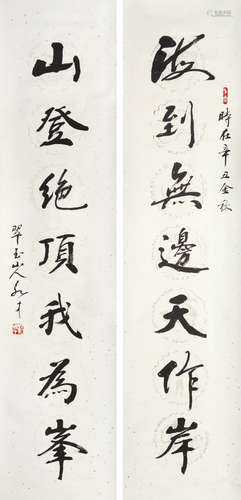 海到無邊天作岸
時在辛丑金秋
山登絕頂我為峯
翠玉山人